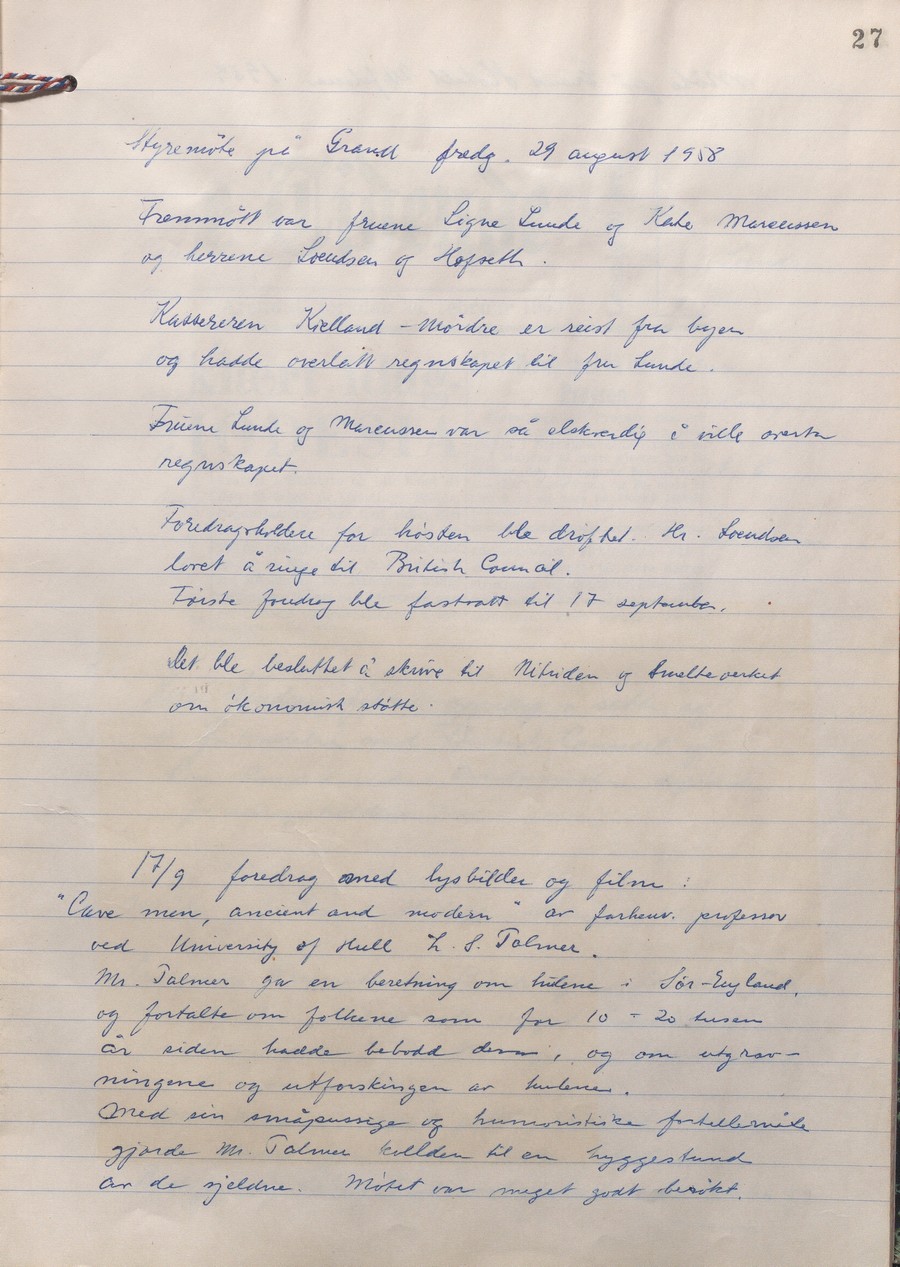 27
Styremöte på Grand fredg. 29 august 1958
Fremmött var fruene Signe Lunde og Kate Marcussen
og herrene Svendsen og Hofseth.
Kassereren Kielland-Mördre er reist fra byen
og hadde overlatt regnskapet til fru Lunde.
Fruene Lunde og Marcussen var så elskverdig å ville overta
regnskapet.
Foredragsholdere for hösten ble dröftet. Hr. Svendsen
lovet å ringe til British Council.
Förste foredrag ble fastsatt til 17 september.
Det ble besluttet å skrive til Nitriden og Smelteverket
om ökonomisk stötte.
17/9 foredrag med lysbilder og film:
"Cave men, ancient and modern" av forhenv. professor
ved University of Hull L. S. Palmer.
Mr. Palmer gav en beretning om hulene i Sör-England,
og fortalte om folkene som for 10 - 20 tusen
år siden hadde bebodd dem, og om utgrav-
ningene og utforskingen av hulene.
Med sin småpussige og humoristiske fortellermåte
gjorde Mr. Palmer kvelden til en hyggestund
av de sjeldne. Mötet var meget godt besökt.